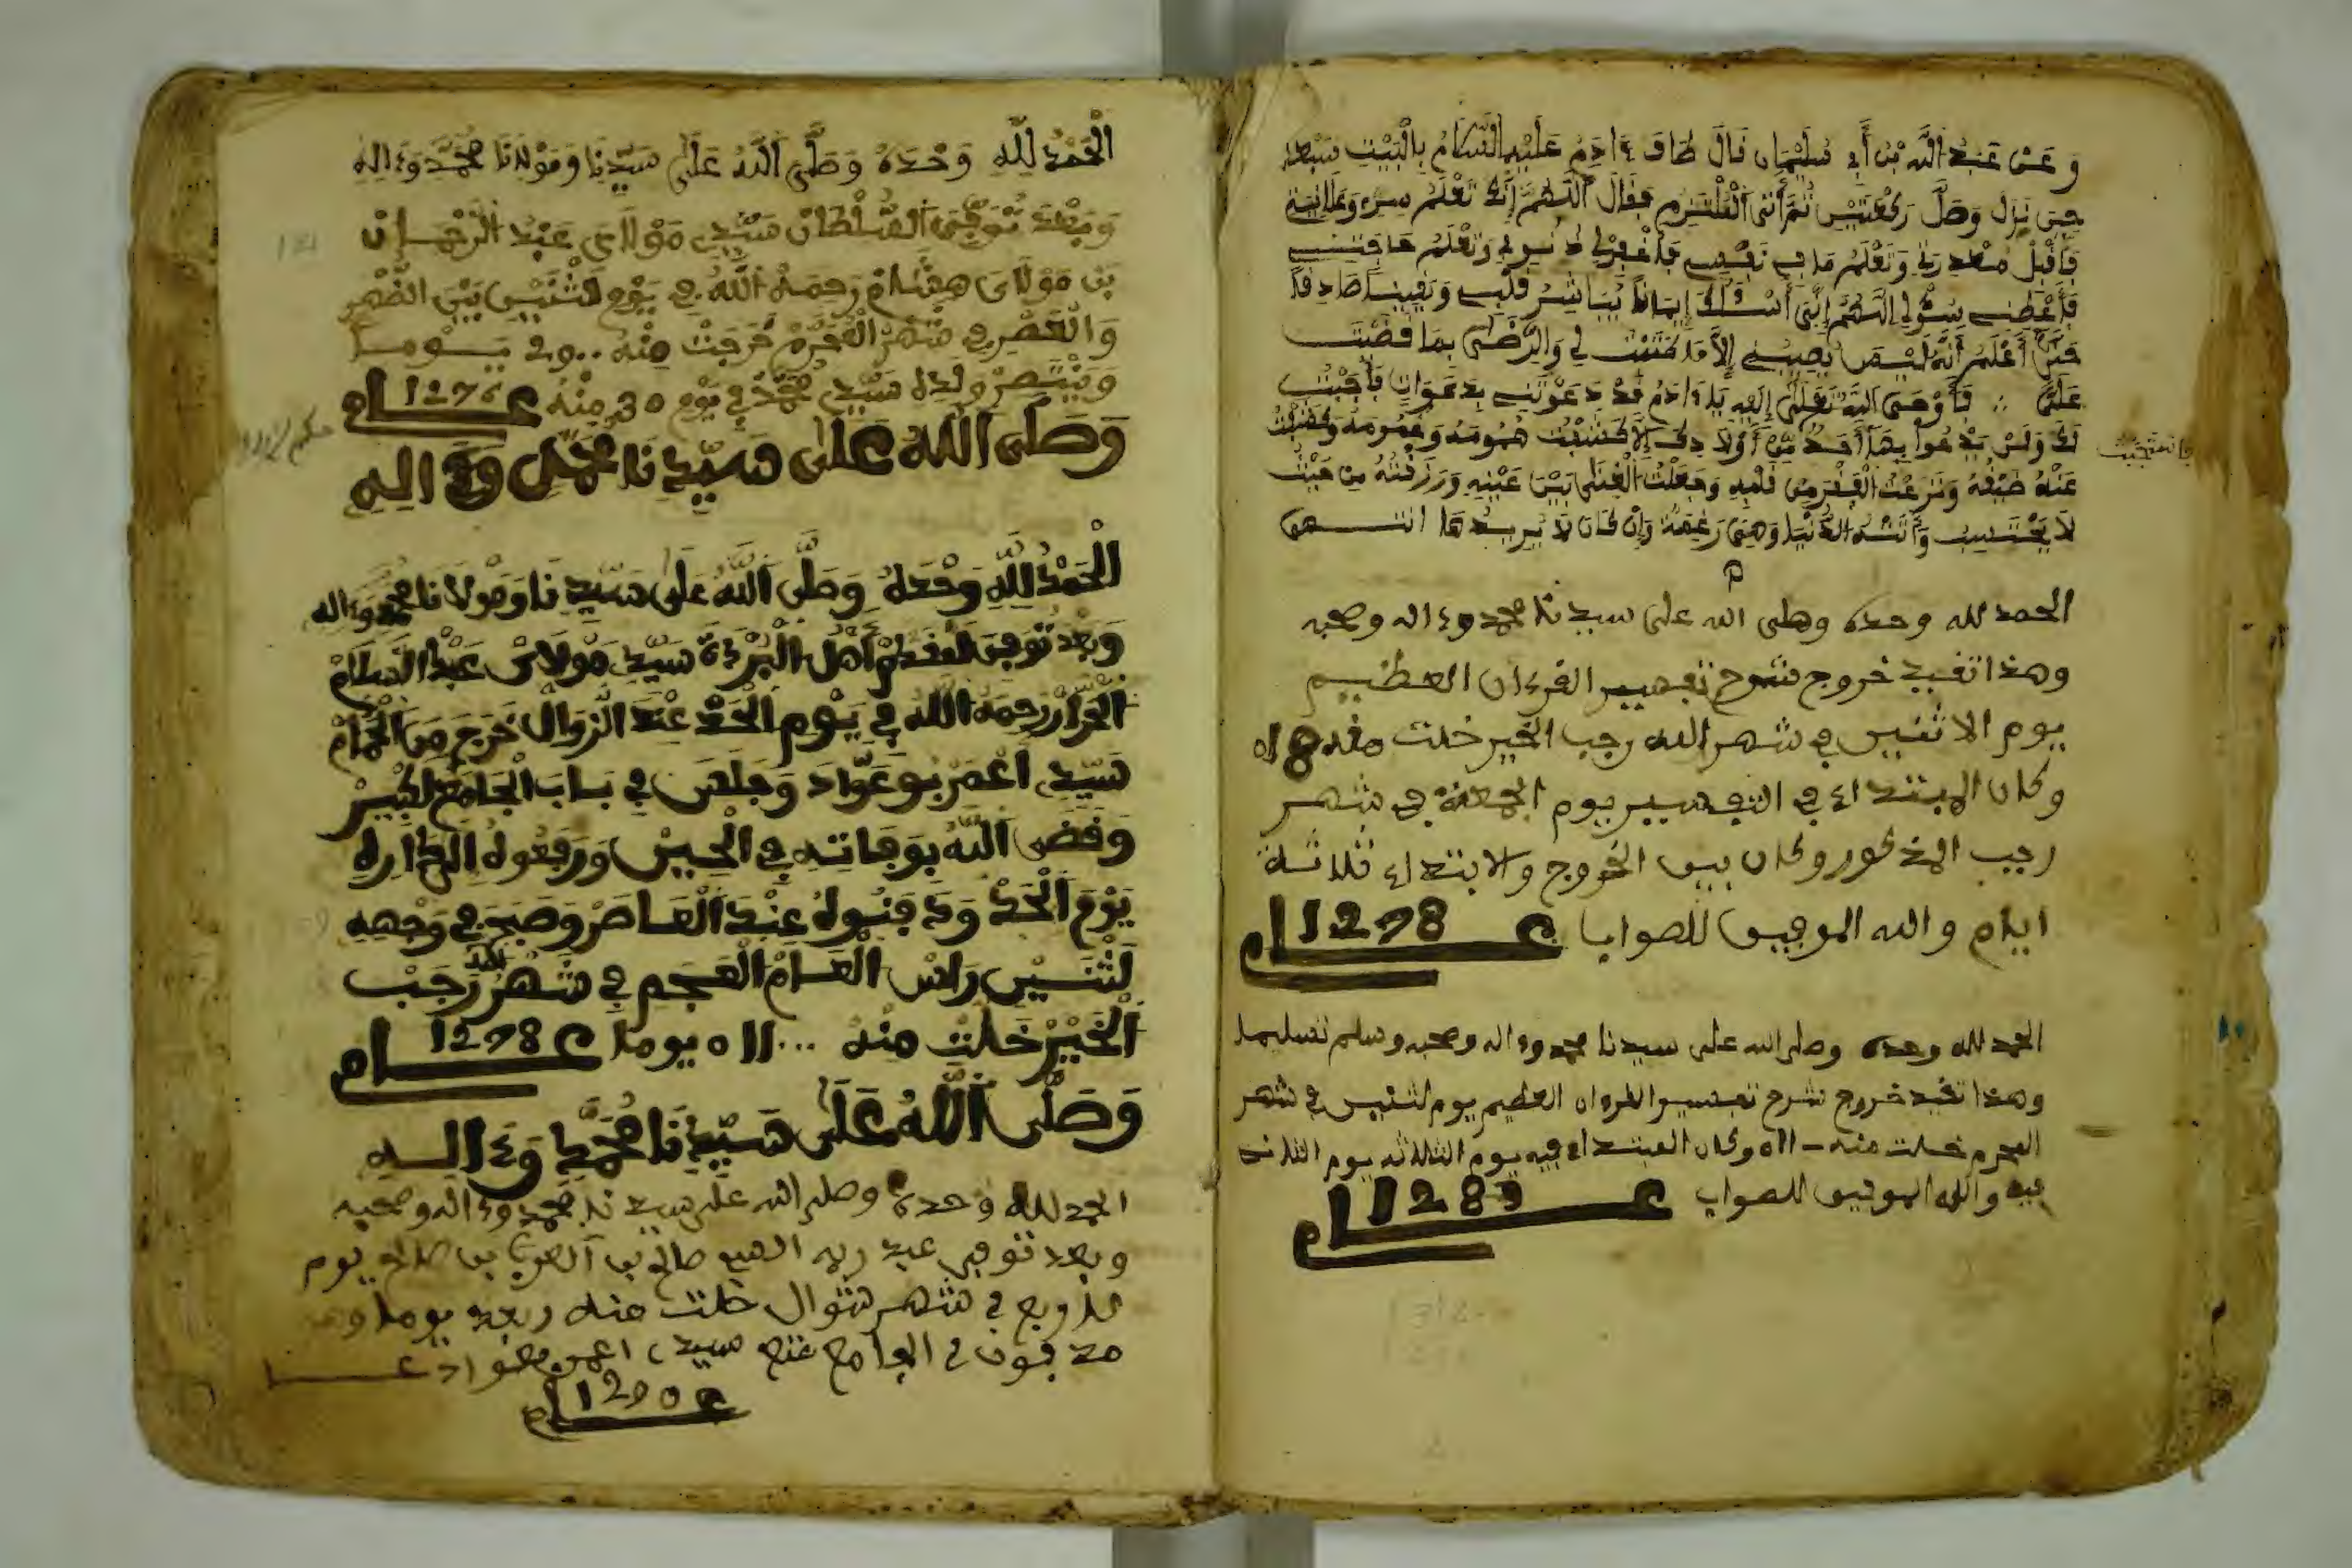 وَعَنْ عَبْدِ اللَّهِ بْنِ أَبِي سُلَيْمَانَ قَالَ طَافَ ءَادَمُ عَلَيْهِ السَّلَامُ بِالْبَيْتِ سَبْعًا
حِينَ نَزَلَ وَصَلَّى رَكْعَتَيْنِ ثُمَّ أَتَى الْمُلْتَزَمَ فَقَالَ اللَّهُمَّ إِنَّكَ تَعْلَمُ سِرِّي وَعَلَانِيَتِي
فَاقْبَلْ مَعْذِرَتِي وَتَعْلَمُ مَا فِي نَفْسِي فَاغْفِرْ لِي ذُنُوبِي وَتَعْلَمُ حَاجَتِي
فَأَعْطِنِي سُؤْلِي اللَّهُمَّ إِنِّي أَسْئَلُكَ إِيمَانًا يُبَاشِرُ قَلْبِي وَيَقِينًا صَادِقًا
حَتَّى أَعْلَمَ أَنَّهُ لَنْ يُصِيبَنِي إِلَّا مَا كَتَبْتَ لِي وَالرِّضَى بِمَا قَضَيْتَ
عَلَيَّ ∴ فَأَوْحَى اللَّهُ تَعَلَى إِلَيْهِ يَا ءَادَمُ قَدْ دَعَوْتَنِي بِدَعَوَاتٍ فَاجَبْتُ
لَكَ وَلَنْ يَدْعُوا بِهَا أَحَدٌ مِنْ أَوْلَادِكَ إِلَّا كَشَفْتُ هُمُومَهُ وَغُمُومَهُ وَكَفَيْتُ
فاستجبت
عَنْهُ ضَيْعَهُ وَنَزَعْتُ الْفَقْرَ مِنْ قَلْبِهِ وَجَعَلْتُ الْغِنَى بَيْنَ عَيْنَيْهِ وَرَزَقْتُهُ مِنْ حَيْثُ
لَا يَحْتَسِبُ وَأَتَتْهُ الدُّنْيَا وَهِيَ رَاغِمَةٌ وَإِنْ كَانَ لَا يُرِيدُهَا انتهى
الحمد لله وحده وصلى الله على سيدنا محمد وءاله وصحبه
وهذا تفيد خروج شرح تفسير القرءان العظيم
يوم الاثنين في شهر الله رجب الخير خلت منه 18
وكان المبتداء في التفسير يوم الجمعة في شهر
رجب المذكور وكان بين الخروج والابتداء ثلاثة
ايام والله الموفق للصواب عام 1278
الحمد لله وحده وصلى الله على سيدنا محمد وءاله وصحبه وسلم تسليما
وهذا تفيد خروج شرح تفسير القرءان العظيم يوم لثنين في شهر
المحرم خلت منه 11 وكان المبتداء فيه يوم الثلاثه يوم الثلاث
فيه والله الموفق للصواب عام 1289
الْحَمْدُ لِلَّهِ وَحْدَهُ وَصَلَّى اللَّهُ عَلَى سَيِّدِنَا وَمَوْلَانَا مُحَمَّدٍ وَءَالِهِ
وَبَعْدَ تُوُفِّيَ السُّلْطَانْ سَيِّدِي مَوْلَايَ عَبْدُ الرَّحْمَانْ
بَن مَوْلَايَ هِشَامْ رَحِمَهُ اللَّهُ فِي يَوْمِ لَثْنَيْنِ بَيْنَ الظُّهْرِ
وَالْعَصْرِ فِي شَهْرِ الْمُحَرَّمْ خَرَجَتْ مِنْهُ ... يَوْمًا
وَيَنْتَصِرْ وَلَدُهُ سَيِّدِي مُحَمَّدْ فِي يَوْمِ 30 مِنْهُ عام 1276
وَصَلَّى اللَّهُ عَلَى سَيِّدِنَا مُحَمَّدٍ وَءَالِهِ
الْحَمْدُ لِلَّهِ وَحْدَهُ وَصَلَّى اللَّهُ عَلَى سَيِّدِنَا وَمَوْلَانَا مُحَمَّدٍ وَءَالِهِ
وَبَعْدُ تُوُفِّيَ لمقدم أَهْلِ الْبُرْدَةِ سَيِّدِي مَوْلَايْ عَبْدُ السَّلَامْ
الْحَرَّازْ رَحِمَهُ اللَّهُ فِي يَوْمِ الْحَدْ عِنْدَ الزَّوَالْ خَرَجَ مِنَ الْحَمَّامْ
سَيِّدِي اَعْمَرْ بُوعَوَّادَ وَجَلَسَ فِي بَابَ الْجَامَعْ الْكَبِيرْ
وَقَضَى اللَّهُ بِوَفَاتِهِ فِي الْحِينْ وَرَفَعُوهُ إِلَى دَارِهِ
يَوْمَ الْحَدْ وَدَفَنُوهُ عِنْدَ الْعَاصَرْ وَصَبَحَ فِي وَجْهِهِ
لَثْنَيْنِ رَاسْ الْعَامْ الْعَجَم فِي شَهْرُ الله رَجَبْ
الْخَيْرْ خَلَتْ مِنْهُ ... 11 يوما عام 1278
وَصَلَّى اللَّهُ عَلَى سَيِّدِنَا مُحَمَّدٍ وَءَالِهِ
الحمد لله وحده وصلى الله على سيدنا محمد وءاله وصحبه
وبعد توفي عبد ربه صالح بن العربي بن صالح يوم
في شهر شوال خلت منه ربعة يوما وهو
مدفون في الجامع سيدي اعمر
عام 1290